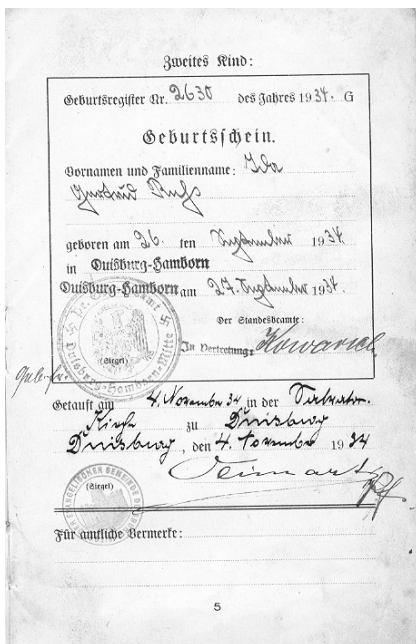 Zweites Kind:
Geburtsregister Nr. 2630 des Jahres 1934. G
Geburtsschein.
Vornamen und Familienname: Ida
Gertrud
geboren am 26. ten September 1934.
in Duisburg-Hamborn
Duisburg-Hamborn am 27. September 1934.
Der Standesbeamte:
In Vertretung:
(Siegel)
Duisburg-Hamborn-Mitte
Getauft am 4. November 34 in der Salvator-
Kirche zu Duisburg
Duisburg, den 4. November 1934
(Siegel)
EVANGELISCHEN GEMEINDE
Für amtliche Vermerke:
5